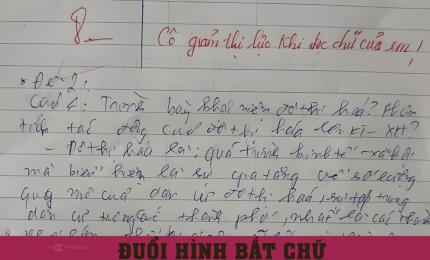 8-
Cô giảm thị lực khi đọc chữ của em!
* Đề 2:
Câu 4: Trình bày khái niệm đô thị hoá? Phân
tích tác động của đô thị hóa lên KT-XH?
- Đô thị hóa là: quá trình kinh tế-xã hội
mà biểu hiện là sự gia tăng về số lượng
quy mô của dân cư đô thị hoá, sự tập trung
dân cư trong các thành phố, nhất là các thành
ĐUỔI HÌNH BẮT CHỮ